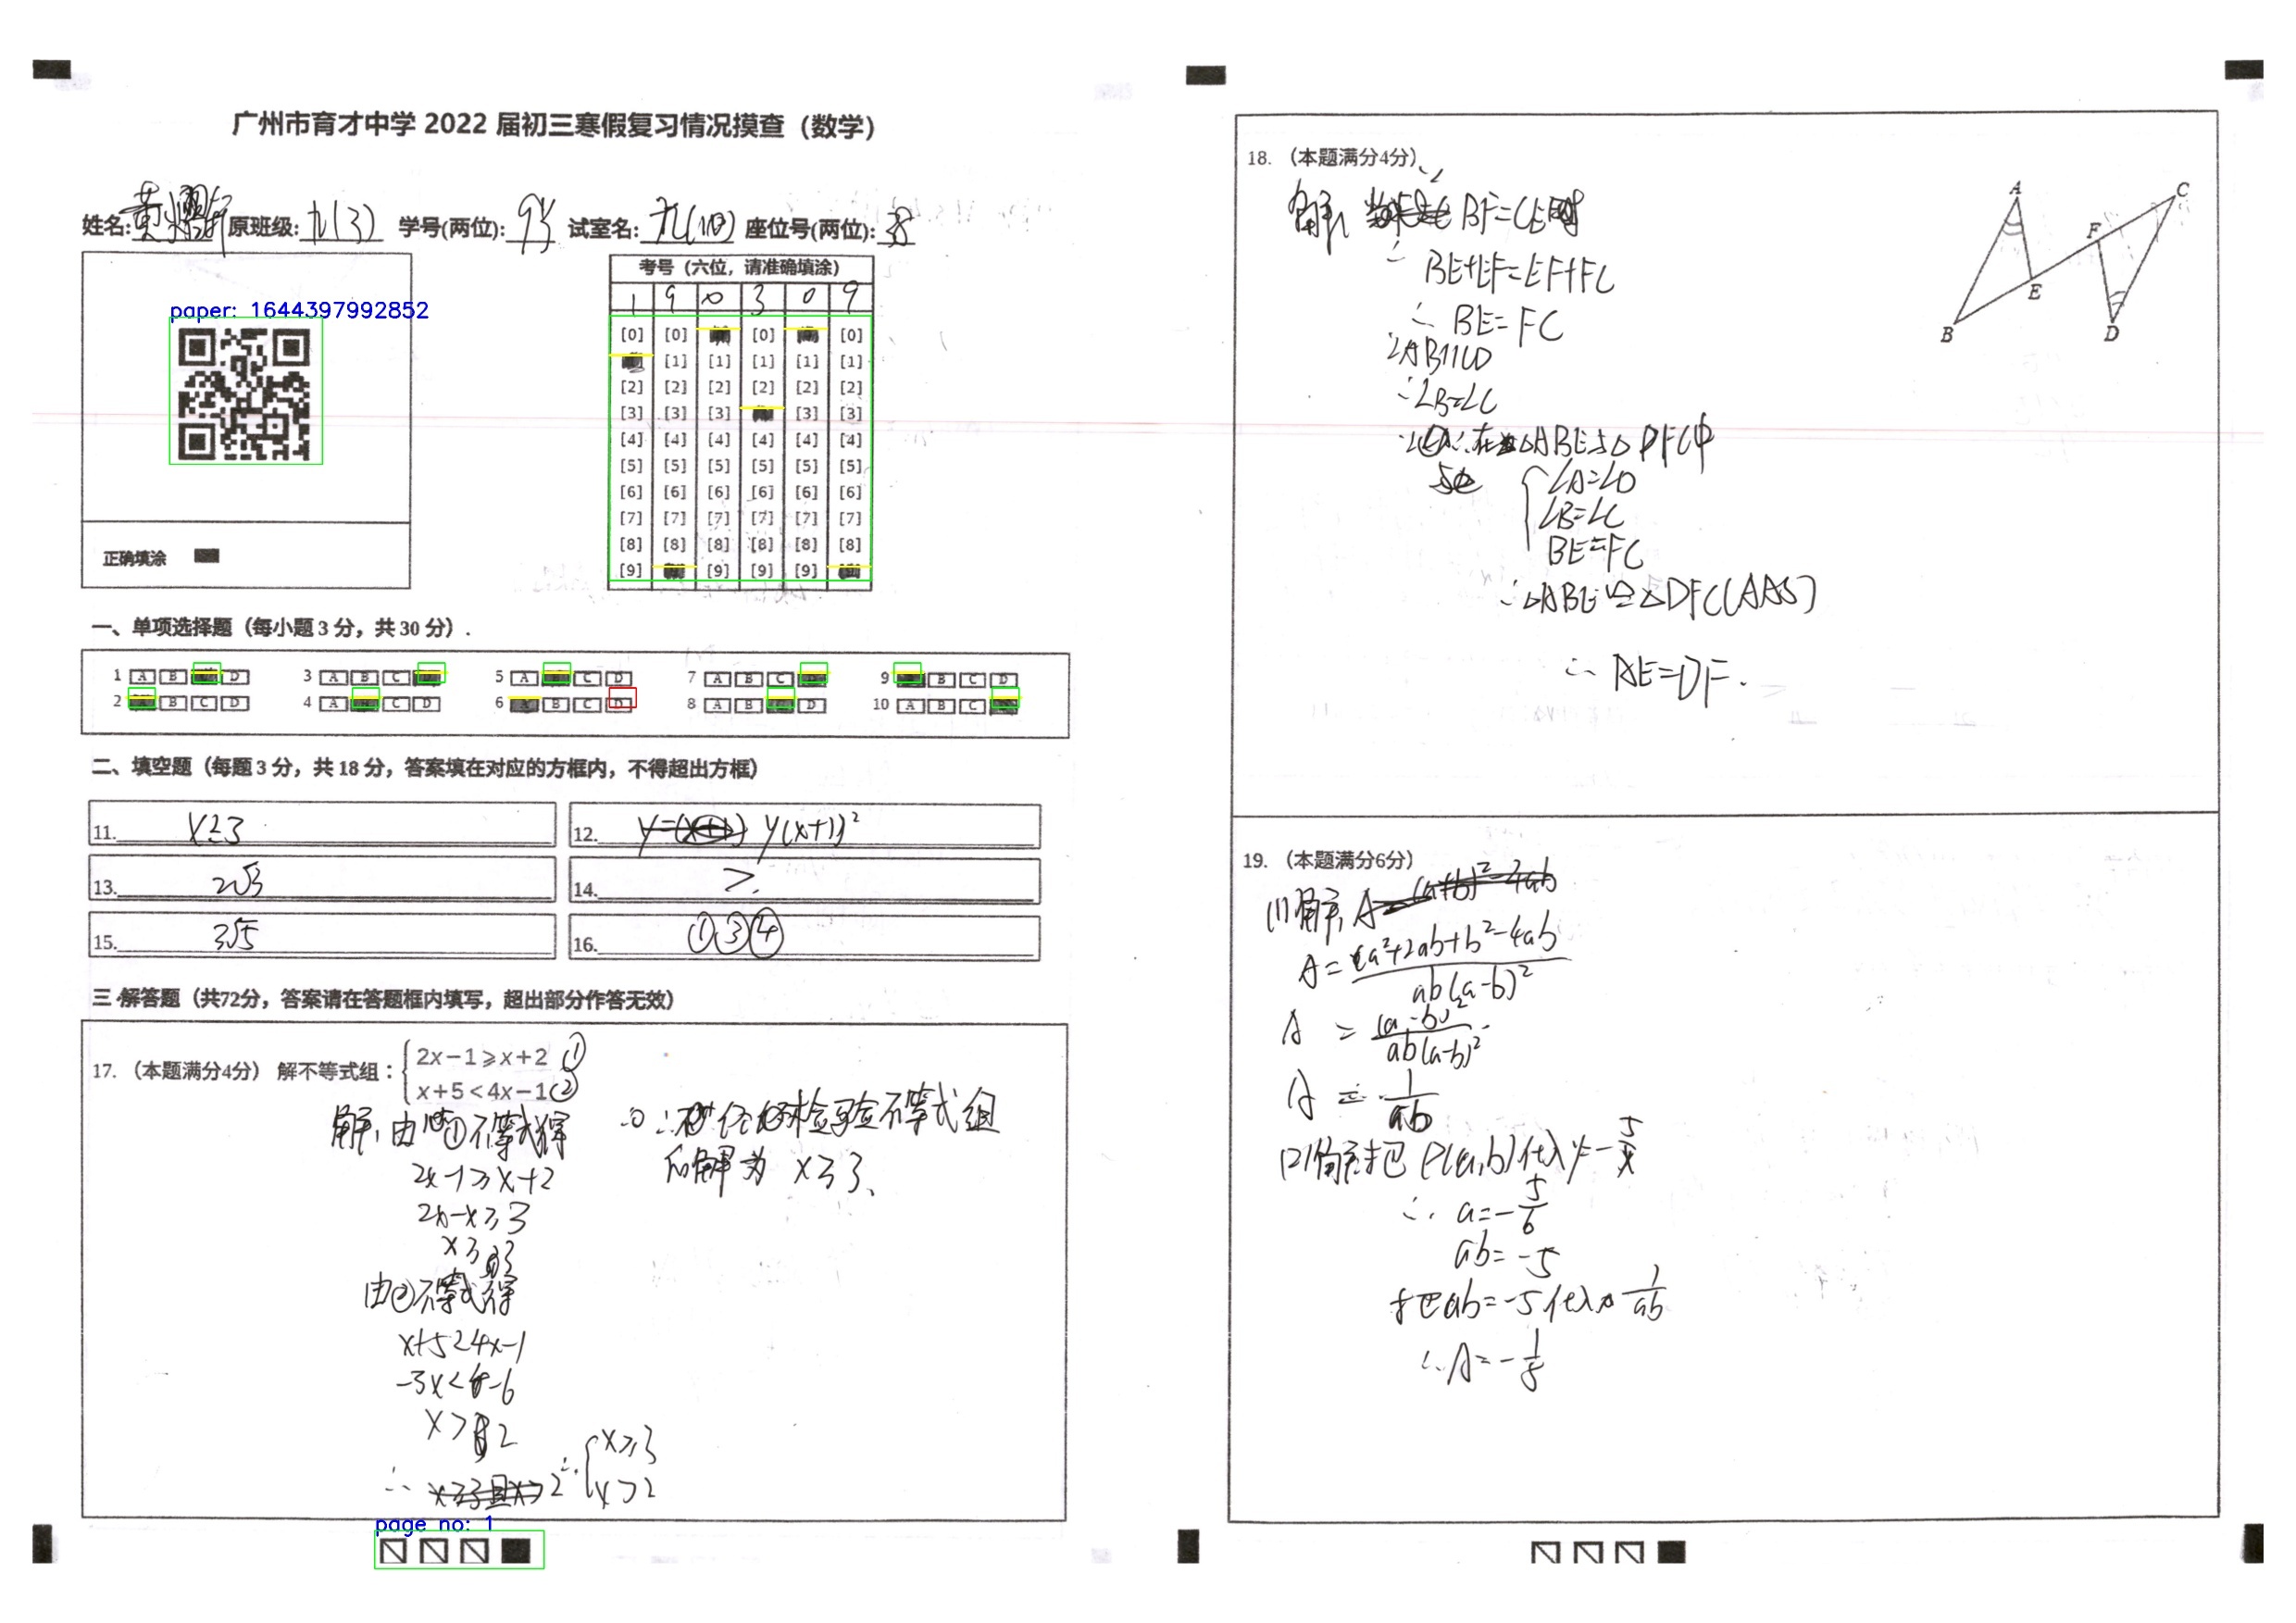 广州市育才中学 2022 届初三寒假复习情况摸查（数学）
姓名: 黄 原班级: 九(3) 学号(两位): 试室名: 九(10) 座位号(两位): 38
考号（六位，请准确填涂）
1 9 0 3 0 9
paper: 1644397992852
[0] [0] [0] [0]
[1] [1] [1] [1] [1]
[2] [2] [2] [2] [2] [2]
[3] [3] [3] [3] [3]
[4] [4] [4] [4] [4] [4]
[5] [5] [5] [5] [5] [5]
[6] [6] [6] [6] [6] [6]
[7] [7] [7] [7] [7] [7]
[8] [8] [8] [8] [8] [8]
[9] [9] [9] [9]
正确填涂
一、单项选择题（每小题 3 分，共 30 分）.
1 A B D 3 A B C 5 A C D 7 A B C 9 B C D
2 A B C D 4 A C D 6 B C D 8 A B D 10 A B C
二、填空题（每题 3 分，共 18 分，答案填在对应的方框内，不得超出方框）
11. x≥3
12. y(x+1)²
13. 2√3
14. >.
15. 3√5
16. ①③④
三 解答题（共72分，答案请在答题框内填写，超出部分作答无效）
17. （本题满分4分） 解不等式组： { 2x−1⩾x+2 ①
x+5<4x−1 ②
解, 由①不等式得
2x-1≥x+2
2x-x≥3
x≥3
由②不等式得
x+5<4x-1
-3x<-6
x>2
∴ { x≥3
x>2
∴ 经检验不等式组
的解为 x≥3、
page no: 1
18. （本题满分4分）
解, ∵ BF=CE
∴ BE+EF=EF+FC
∴ BE=FC
∵AB∥CD
∴∠B=∠C
∴在△ABE与△DFC中
{ ∠A=∠D
∠B=∠C
BE=FC
∴△ABE≌△DFC(AAS)
∴ AE=DF.
A
C
F
E
B
D
19. （本题满分6分）
(1)解,
A=(a²+2ab+b²-4ab)/(ab(a-b)²)
A =(a-b)²/(ab(a-b)²)
A = 1/ab
(2)解把 P(a,b)代入y=-5/x
∴ a=-5/b
ab=-5
把ab=-5代入 1/ab
∴A=-1/5